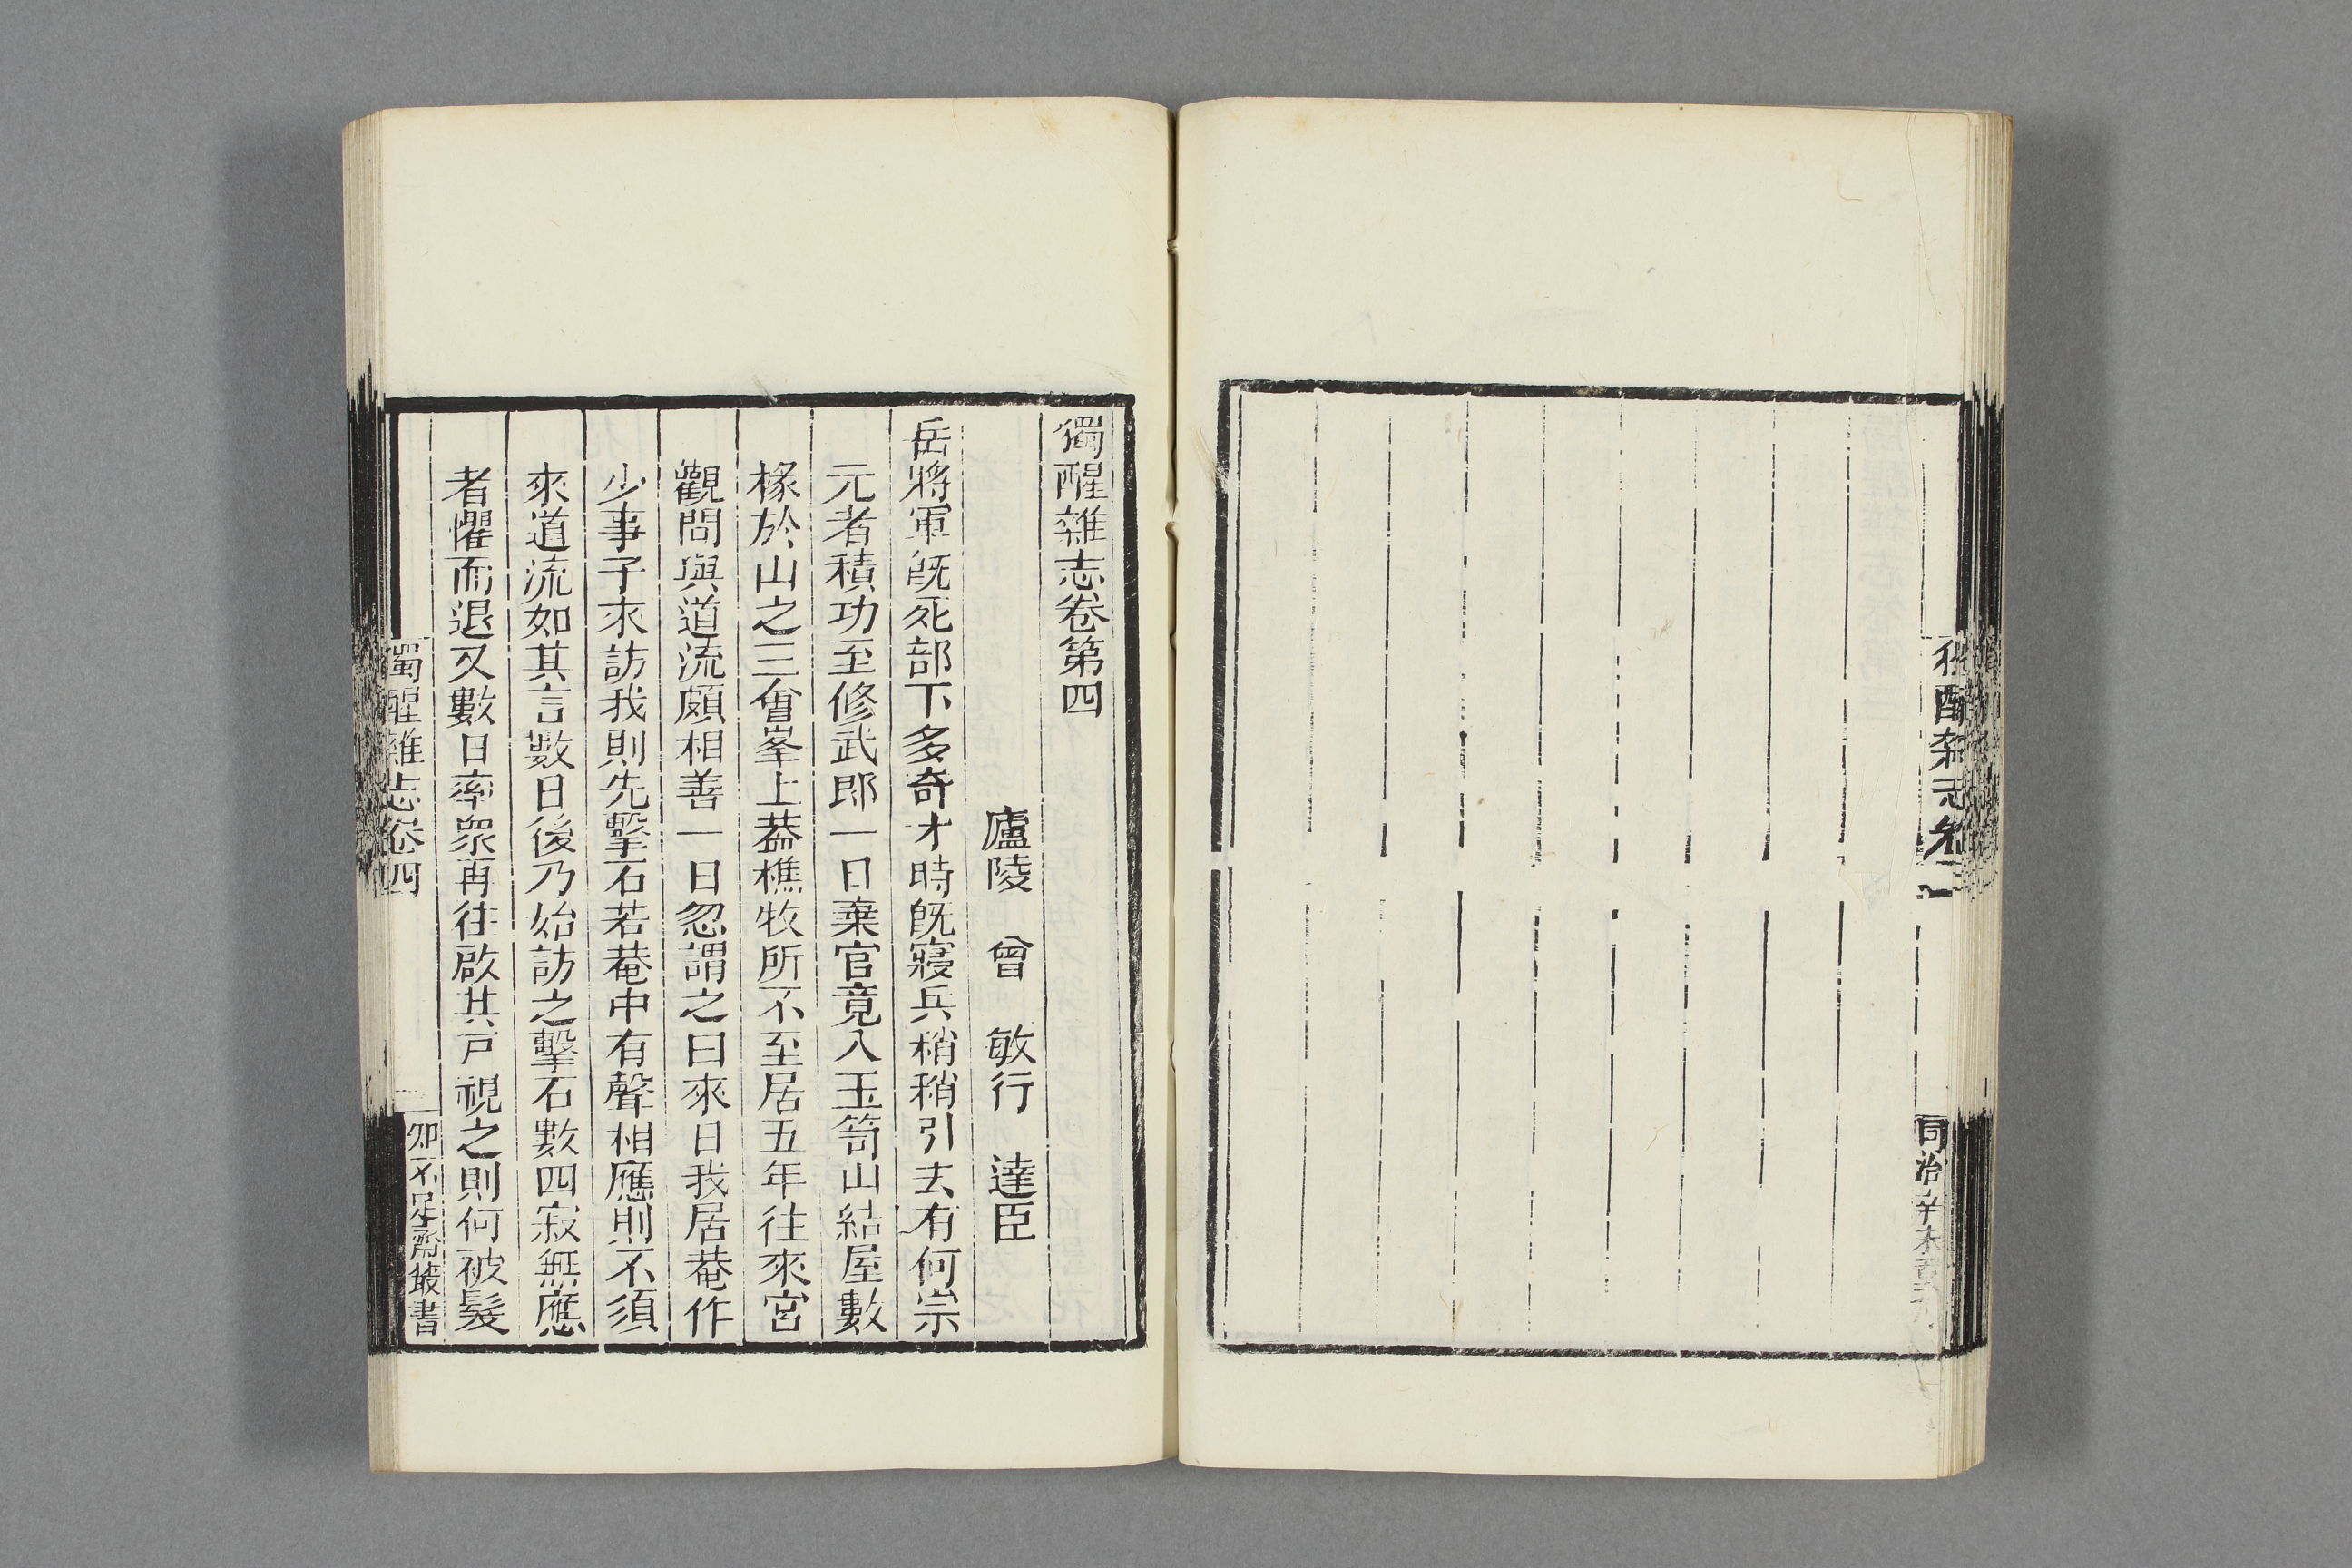 獨醒雜志卷第四
廬陵 曾 敏行 達臣
岳將軍旣死部下多奇才時旣寢兵稍稍引去有何宗
元者積功至修武郎一日棄官竟入玉笥山結屋數
椽於山之三會峯上葢樵牧所不至居五年往來宮
觀問與道流頗相善一日忽謂之曰來日我居菴作
少事子來訪我則先擊石若菴中有聲相應則不須
來道流如其言數日後乃始訪之擊石數四寂無應
者懼而退又數日率衆再往啟其戸視之則何被髮
獨醒雜志卷四
知不足齋叢書